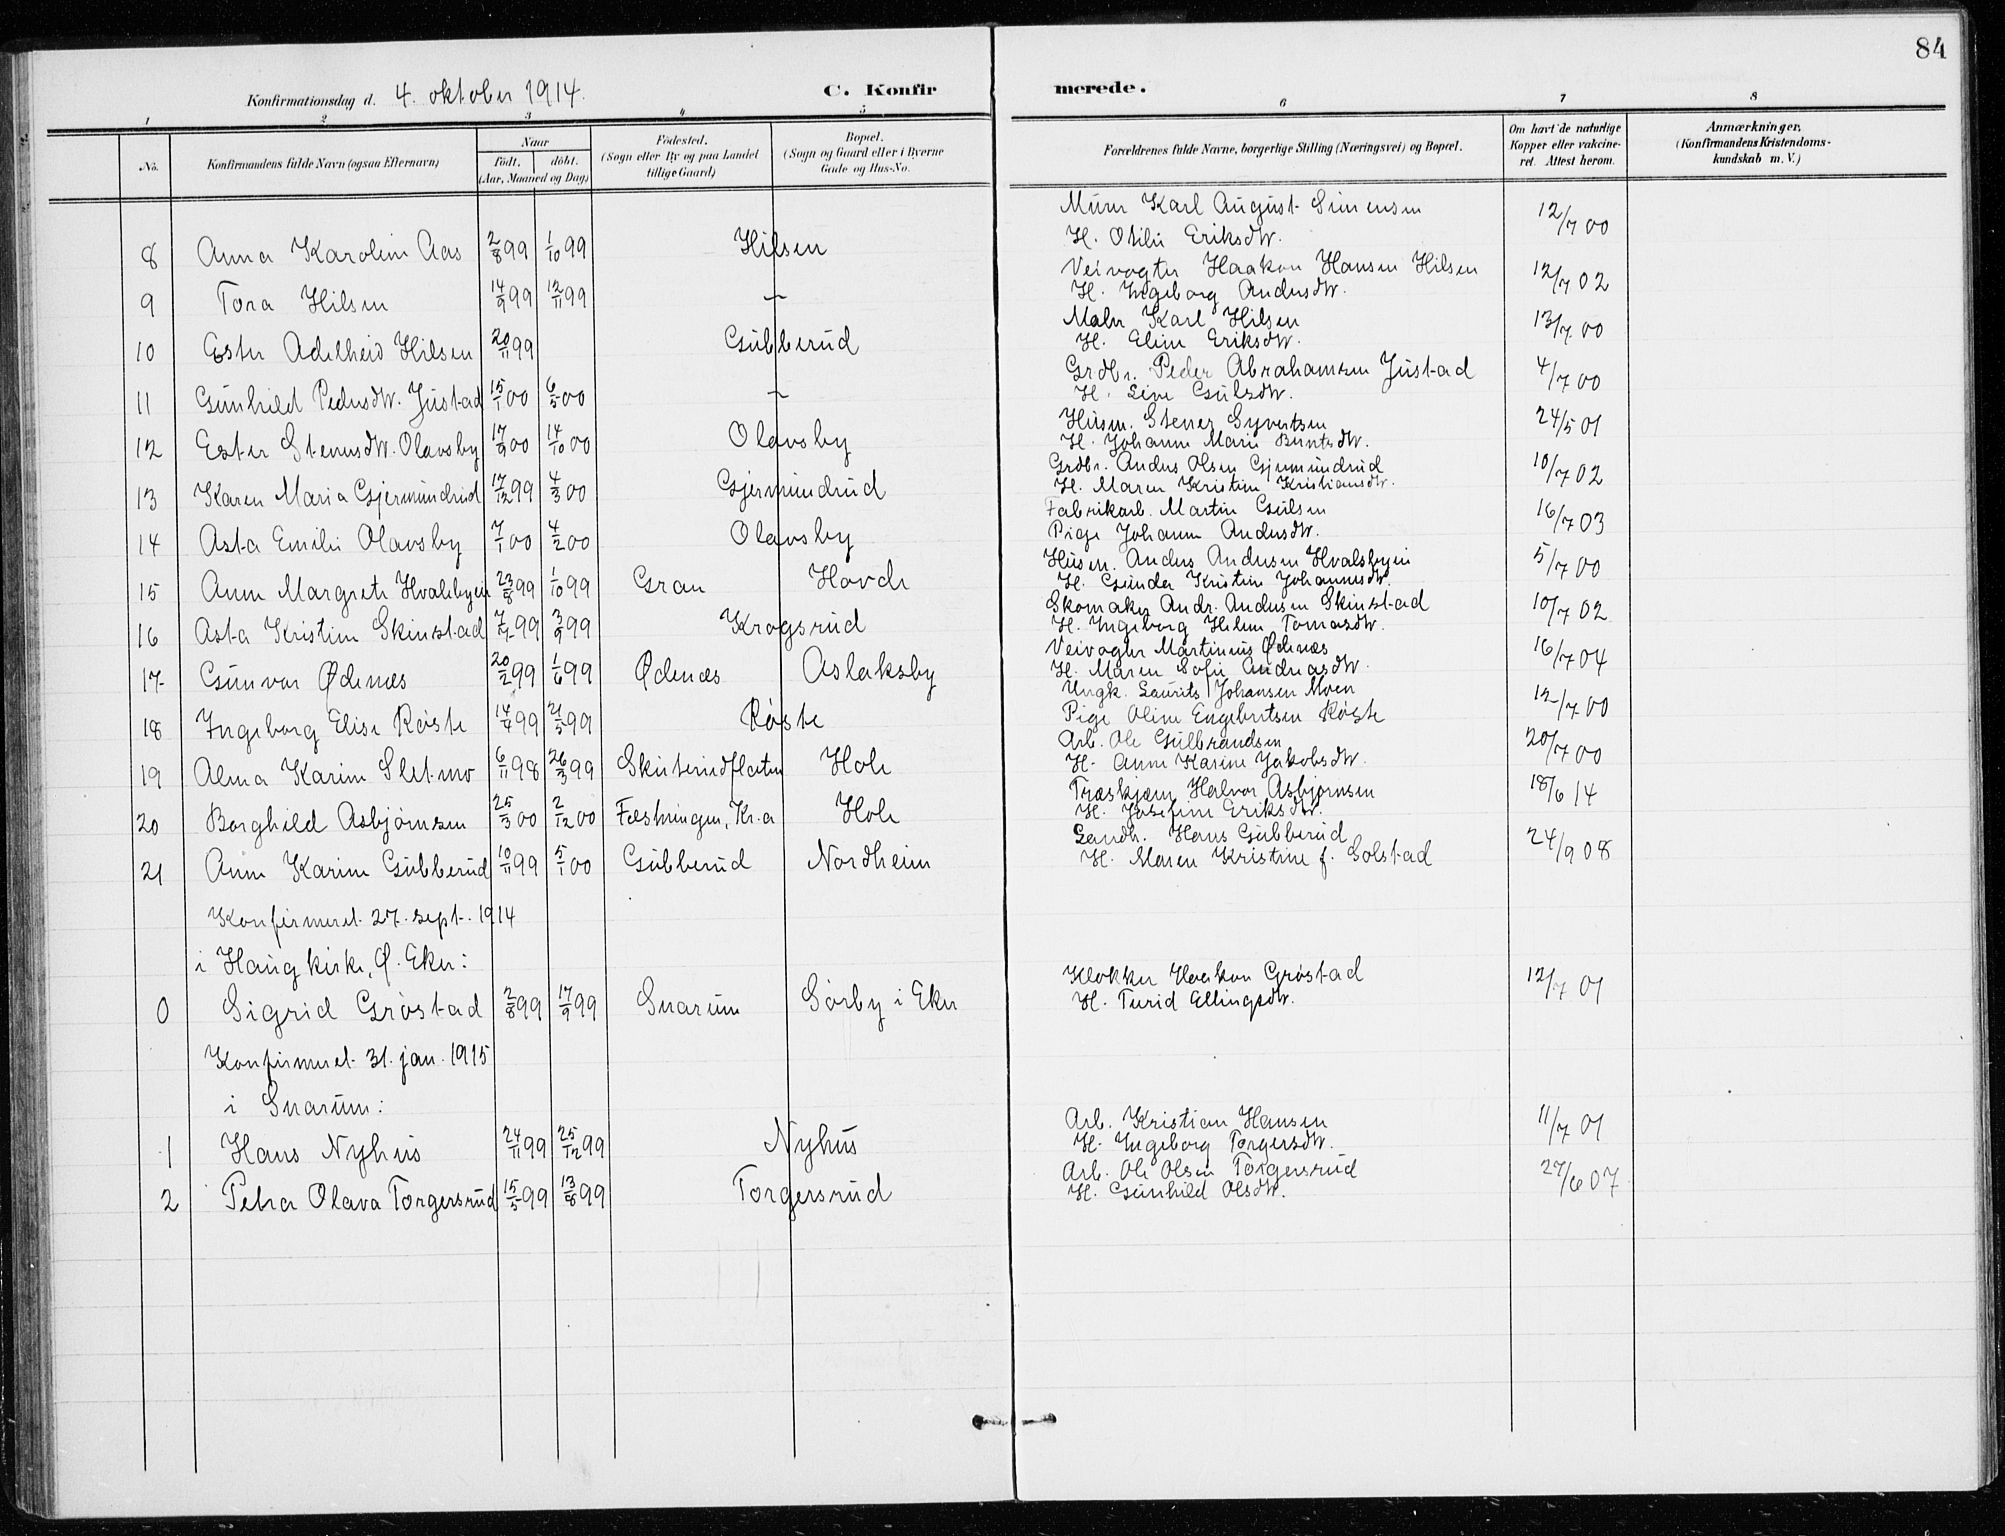 84
Konfirmationsdag d. 4. oktober 1914. C. Konfirmerede.
1 2 3 4 5 6 7 8
No. Konfirmandens fulde Navn (ogsaa Efternavn) Naar Født, døbt. (Aar, Maaned og Dag) Fødested. (Sogn eller By og paa Landet tillige Gaard) Bopæl. (Sogn og Gaard eller i Byerne Gade og Hus-No. Forældrenes fulde Navne, borgerlige Stilling (Næringsvei) og Bopæl. Om havt de naturlige Kopper eller vakcineret. Attest herom. Anmærkninger. (Konfirmandens Kristendomskundskab m. V.)
Murer Karl August Simensen
8 Anna Karoline Aas 2/8 99 1/10 99 Hilsen H. Otilie Eriksdtr. 12/7 00
Veivogter Haakon Hansen Hilsen
9 Tora Hilsen 14/9 99 12/11 99 — H. Ingeborg Andersdtr. 12/7 02
Maler Karl Hilsen
10 Ester Adelheid Hilsen 20/11 99 Gubberud H. Eline Eriksdtr. 13/7 00
Grdbr. Peder Abrahamsen Justad
11 Gunhild Pedersdtr. Justad 15/1 00 6/5 00 — H. Live Gulsdtr. 4/7 00
Husm. Stener Syvertsen
12 Ester Stenersdtr. Olavsby 17/9 00 14/10 00 Olavsby H. Johanne Marie Berntsdtr. 24/5 01
Grdbr. Anders Olsen Gjermundrud
13 Karen Maria Gjermundrud 17/12 99 4/3 00 Gjermundrud H. Maren Kristine Kristiansdtr. 10/7 02
Fabrikarb. Martin Gulsen
14 Asta Emilie Olavsby 7/1 00 4/2 00 Olavsby Pige Johanne Andersdtr. 16/7 03
Husm. Anders Andersen Hvalsbyeie
15 Anne Margrete Hvalsbyeie 23/8 99 1/10 99 Gran Hovde H. Gunda Kristine Johannesdtr. 5/7 00
Skomaker Andr. Andersen Skinstad
16 Asta Kristine Skinstad 7/7 99 3/9 99 Krogsrud H. Ingeborg Helene Tomasdtr. 10/7 02
Veivogter Martinius Ødenæs
17 Gunvor Ødenæs 20/2 99 1/6 99 Ødenæs Aslaksby H. Maren Sofie Andreasdtr. 16/7 04
Ungk. Laurits Johansen Moen
18 Ingeborg Elise Røste 14/4 99 21/5 99 Røste Pige Oline Engebretsen Røste 12/7 00
Arb. Ole Gulbrandsen
19 Alma Karine Sletmo 6/11 98 26/3 99 Skuterudfløten Hole H. Anne Karine Jakobsdtr. 20/7 00
Træskjærer Halvor Asbjørnsen
20 Borghild Asbjørnsen 25/3 00 2/12 00 Fæstningen, Kr.a Hole H. Josefine Eriksdtr. 18/6 14
Landh. Hans Gubberud
21 Anne Karine Gubberud 10/11 99 5/1 00 Gubberud Nordheim H. Maren Kristine f. Solstad 24/9 08
Konfirmeret 27. sept. 1914
i Haug kirke, Ø. Eker:
Klokker Haakon Grøstad
0 Sigrid Grøstad 2/8 99 17/9 99 Snarum Sørby i Eker H. Turid Ellingsdtr. 12/7 01
Konfirmeret 31. jan. 1915
i Snarum:
Arb. Kristian Hansen
1 Hans Nyhus 24/11 99 25/12 99 Nyhus H. Ingeborg Torgersdtr. 11/7 01
Arb. Ole Olsen Torgersrud
2 Petra Olava Torgersrud 15/5 99 13/8 99 Torgersrud H. Gunhild Olsdtr. 27/6 07